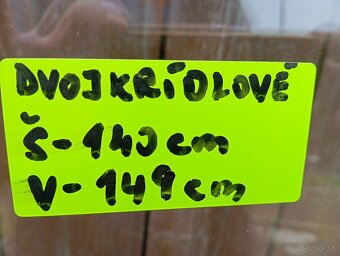 DVOJKRÍDLOVÉ
Š-140cm
V-149cm
Bazos.sk